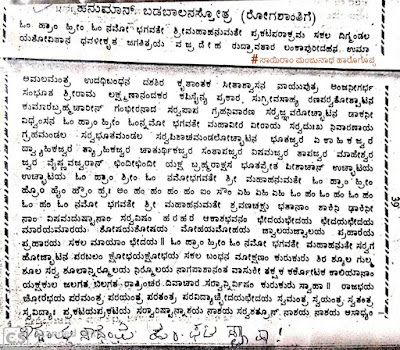 ಹನುಮಾನ್ ಬಡಬಾಲನಸ್ತೋತ್ರ (ರೋಗಶಾಂತಿಗೆ)
ಓಂ ಹ್ರಾಂ ಹ್ರೀಂ ಓಂ ನಮೋ ಭಗವತೇ ಶ್ರೀಮಹಾಹನುಮತೇ ಪ್ರಕಟಪರಾಕ್ರಮ ಸಕಲ ದಿಗ್ಮಂಡಲ
ಯಶೋವಿತಾನ ಧವಳೀಕೃತ ಜಗತ್ರಿತಯ ವಜ್ರದೇಹ ರುದ್ರಾವತಾರ ಲಂಕಾಪುರೀದಹನ, ಉಮಾ
#ಸಾಯಿರಾಂ ಮಂಜುನಾಥ ಹಾರೊಗೊಪ್ಪ
ಅಮಲಮಂತ್ರ, ಉದಧಿಬಂಧನ ದಶಶಿರ ಕೃತಾಂತಕ ಸೀತಾಶ್ವಾಸನ ವಾಯುಪುತ್ರ, ಅಂಜನೀಗರ್ಭ
ಸಂಭೂತ ಶ್ರೀರಾಮ ಲಕ್ಷ್ಮಣಾನಂದಕರ ಕಪಿಸೈನ್ಯ ಪ್ರಕಾರ, ಸುಗ್ರೀವಸಾಹ್ಯ ರಣಪರ್ವತೋತ್ಪಾಟನ
ಕುಮಾರಬ್ರಹ್ಮಚಾರೀನ್ ಗಂಭೀರನಾದ ಸರ್ವಪಾಪ ಗ್ರಹನಿವಾರಣ ಸರ್ವಜ್ವರೋಚ್ಚಾಟನ ಡಾಕಿನೀ
ವಿಧ್ವಂಸನ ಓಂ ಹ್ರಾಂ ಹ್ರೀಂ ಓಂನಮೋ ಭಗವತೇ ಮಹಾವೀರ ವೀರಾಯ ಸರ್ವದುಃಖ ನಿವಾರಣಾಯ
ಗ್ರಹಮಂಡಲ ಸರ್ವಭೂತಮಂಡಲ ಸರ್ವಪಿಶಾಚಮಂಡಲೋಚ್ಚಾಟನ ಭೂತಜ್ವರ ಏಕಾಹಿಕಜ್ವರ
ದ್ವ್ಯಾಹಿಕಜ್ವರ ತ್ರ್ಯಾಹಿಕಜ್ವರ ಚಾತುರ್ಥಿಕಜ್ವರ ಸಂತಾಪಜ್ವರ ವಿಷಮಜ್ವರ ತಾಪಜ್ವರ ಮಾಹೇಶ್ವರ
ಜ್ವರ ವೈಷ್ಣವಜ್ವರಾನ್ ಛಿಂದಿಛಿಂದೀ ಯಕ್ಷ ಬ್ರಹ್ಮರಾಕ್ಷಸ ಭೂತಪ್ರೇತ ಪಿಶಾಚಾನ್ ಉಚ್ಚಾಟಯ
ಉಚ್ಚಾಟಯ ಓಂ ಹ್ರಾಂ, ಶ್ರೀಂ ಓಂ ನಮೋಭಗವತೇ ಶ್ರೀ ಮಹಾಹನುಮತೇ ಓಂ ಹ್ರಾಂ ಹ್ರೀಂ
ಓಂ ಹಂ ಓಂ ನಮೋ ಭಗವತೇ ಶ್ರೀ ಮಹಾಹನುಮತೇ ಶ್ರವಣಚಕ್ಷು ಭೂತಾನಾಂ ಶಾಕಿನಿ ಢಾಕಿನೀ
ನಾಂ ವಿಷಮದುಷ್ಟಾನಾಂ ಸರ್ವವಿಷಂ ಹರಹರ ಆಕಾಶಭವನಂ ಭೇದಯಭೇದಯ ಛೇದಯಛೇದಯ
ಮಾರಯಮಾರಯ ಶೋಷಯಶೋಷಯ ಮೋಹಯಮೋಹಯ ಜ್ವಾಲಯಜ್ವಾಲಯ ಪ್ರಹಾರಯ
ಪ್ರಹಾರಯ ಸಕಲ ಮಾಯಾಂ ಭೇದಯ॥ ಓಂ ಹ್ರಾಂ ಹ್ರೀಂ ಓಂ ನಮೋ ಭಗವತೇ ಮಹಾಹನುಮತೇ ಸರ್ವಗ್ರ
ಹೋಚ್ಚಾಟನ ಪರಬಲಂ ಕ್ಷೋಭಯಕ್ಷೋಭಯ ಸಕಲ ಬಂಧನ ಮೋಕ್ಷಣಂ ಕುರುಕುರು ಶಿರ ಶ್ಶೂಲ ಗುಲ್ಮ
ಶೂಲ ಸರ್ವ ಶೂಲಾನ್ನಿರ್ಮೂಲಯ ನಿರ್ಮೂಲಯ ನಾಗಪಾಶಾನಂತ ವಾಸುಕೀ ತಕ್ಷಕ ಕರ್ಕೋಟಕ ಕಾಲಿಯಾನಾಂ
ಯಕ್ಷಕುಲ ಜಲಗತ ಬಿಲಗತ ರಾತ್ರಿಂಚರ ದಿವಾಚರ ಸರ್ವಾನ್ನಿರ್ವಿಷಂ ಕುರುಕುರು ಸ್ವಾಹಾ॥ ರಾಜಭಯ
ಚೋರಭಯ ಪರಮಂತ್ರ, ಪರಯಂತ್ರ, ಪರತಂತ್ರ, ಪರವಿದ್ಯಾಚ್ಛೇದಯಛೇದಯ ಸ್ವಮಂತ್ರ, ಸ್ವಯಂತ್ರ, ಸ್ವತಂತ್ರ,
ಸ್ವವಿದ್ಯಾಃ ಪ್ರಕಟಯಪ್ರಕಟಯ ಸರ್ವಾರಿಷ್ಟಾನ್ನಾಶಯ ನಾಶಯ ಸರ್ವಶತ್ರೂನ್ ನಾಶಯ, ನಾಶಯ ಅಸಾಧ್ಯಂ
39